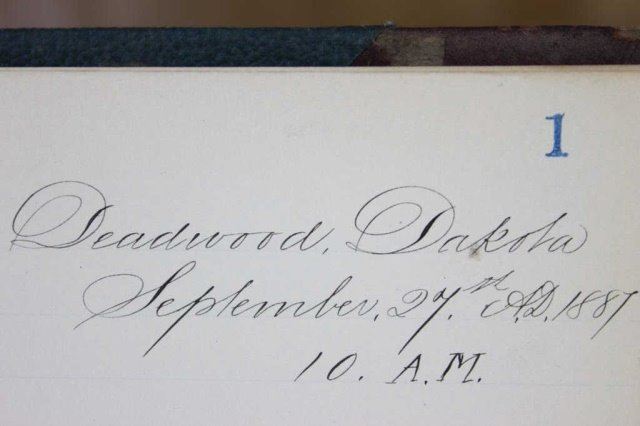 1
Deadwood, Dakota
September, 27.st A.D. 1887
10. A.M.